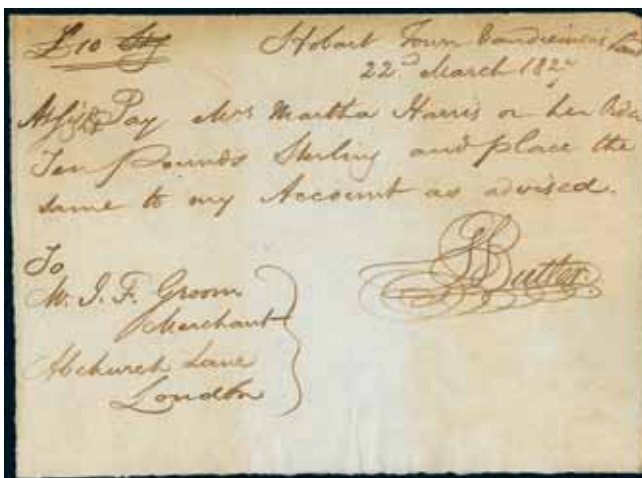 £10 Stg Hobart Town Vandiemens Land
22d March 182
At Sight Pay Mrs Martha Harris or her Order
Ten Pounds Sterling and place the
same to my Account as advised.
Butler
To
Mr. J. F. Groom
Merchant
Abchurch Lane
London